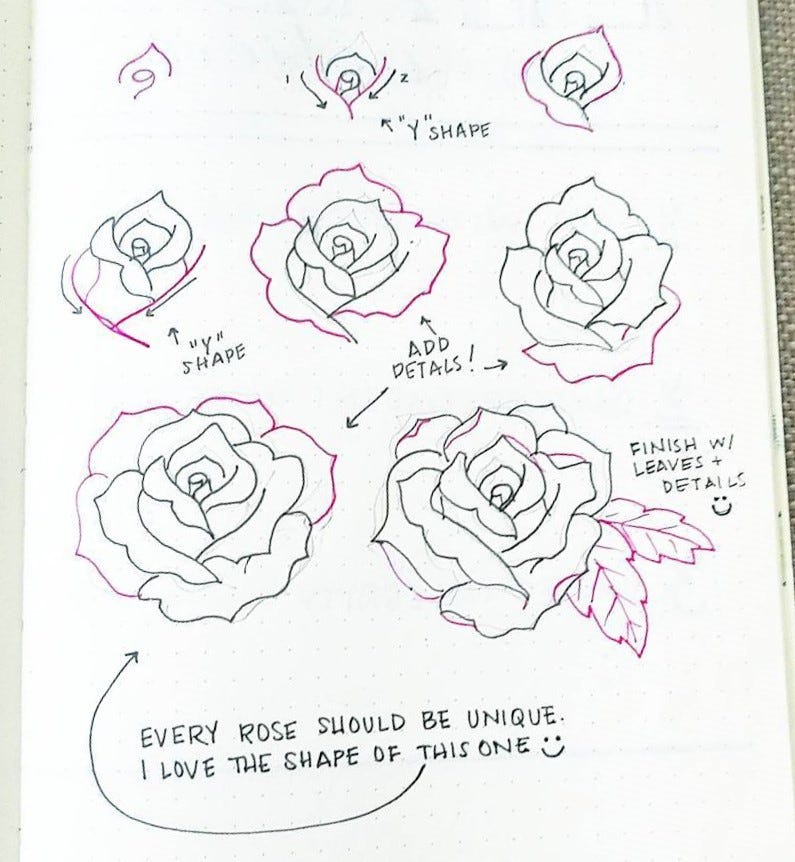 1
2
"Y" SHAPE
"Y"
SHAPE
ADD
DETALS!
FINISH W/
LEAVES +
DETAILS
EVERY ROSE SHOULD BE UNIQUE.
I LOVE THE SHAPE OF THIS ONE